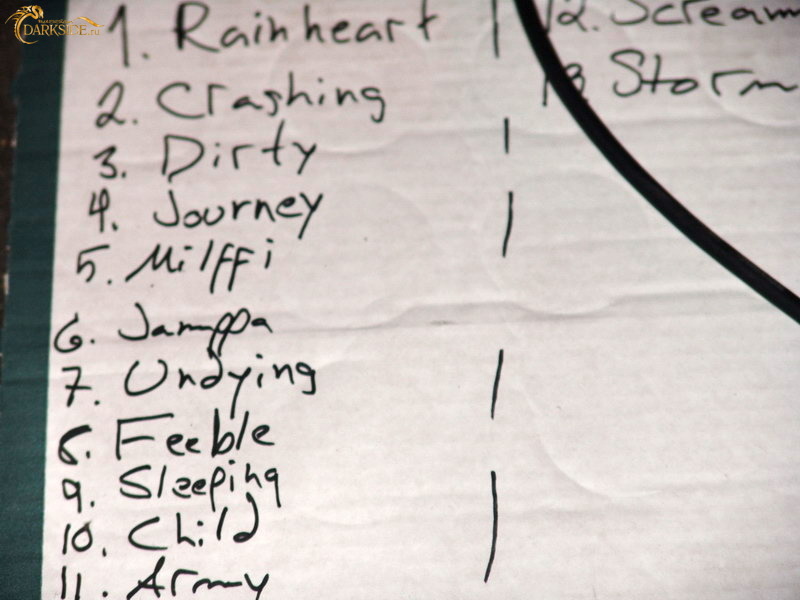 DARKSIDE.ru
1. Rainheart
2. Crashing
3. Dirty
4. Journey
5. Milffi
6. Jamppa
7. Undying
8. Feeble
9. Sleeping
10. Child
11. Army
12. Scream
13 Storm